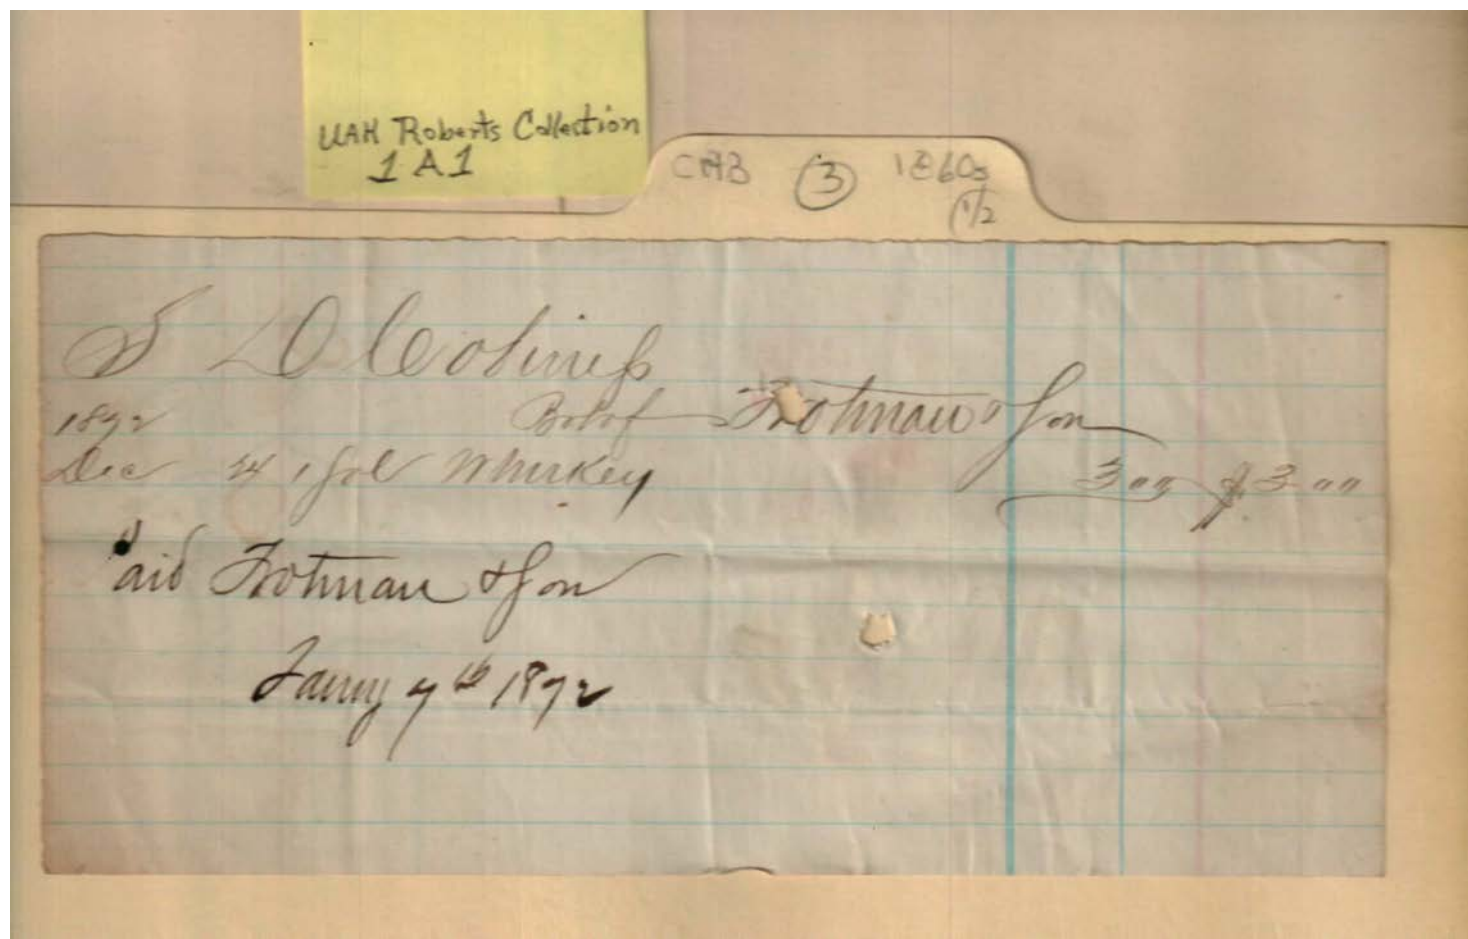 UAH Roberts Collection
1 A 1
CAB 3 1860s
1/2
S D
1872 Bot of Trotman & Son
Dec 24 1 gal Whiskey 3 00 $3 00
Paid Trotman & Son
Jany 7th 1872